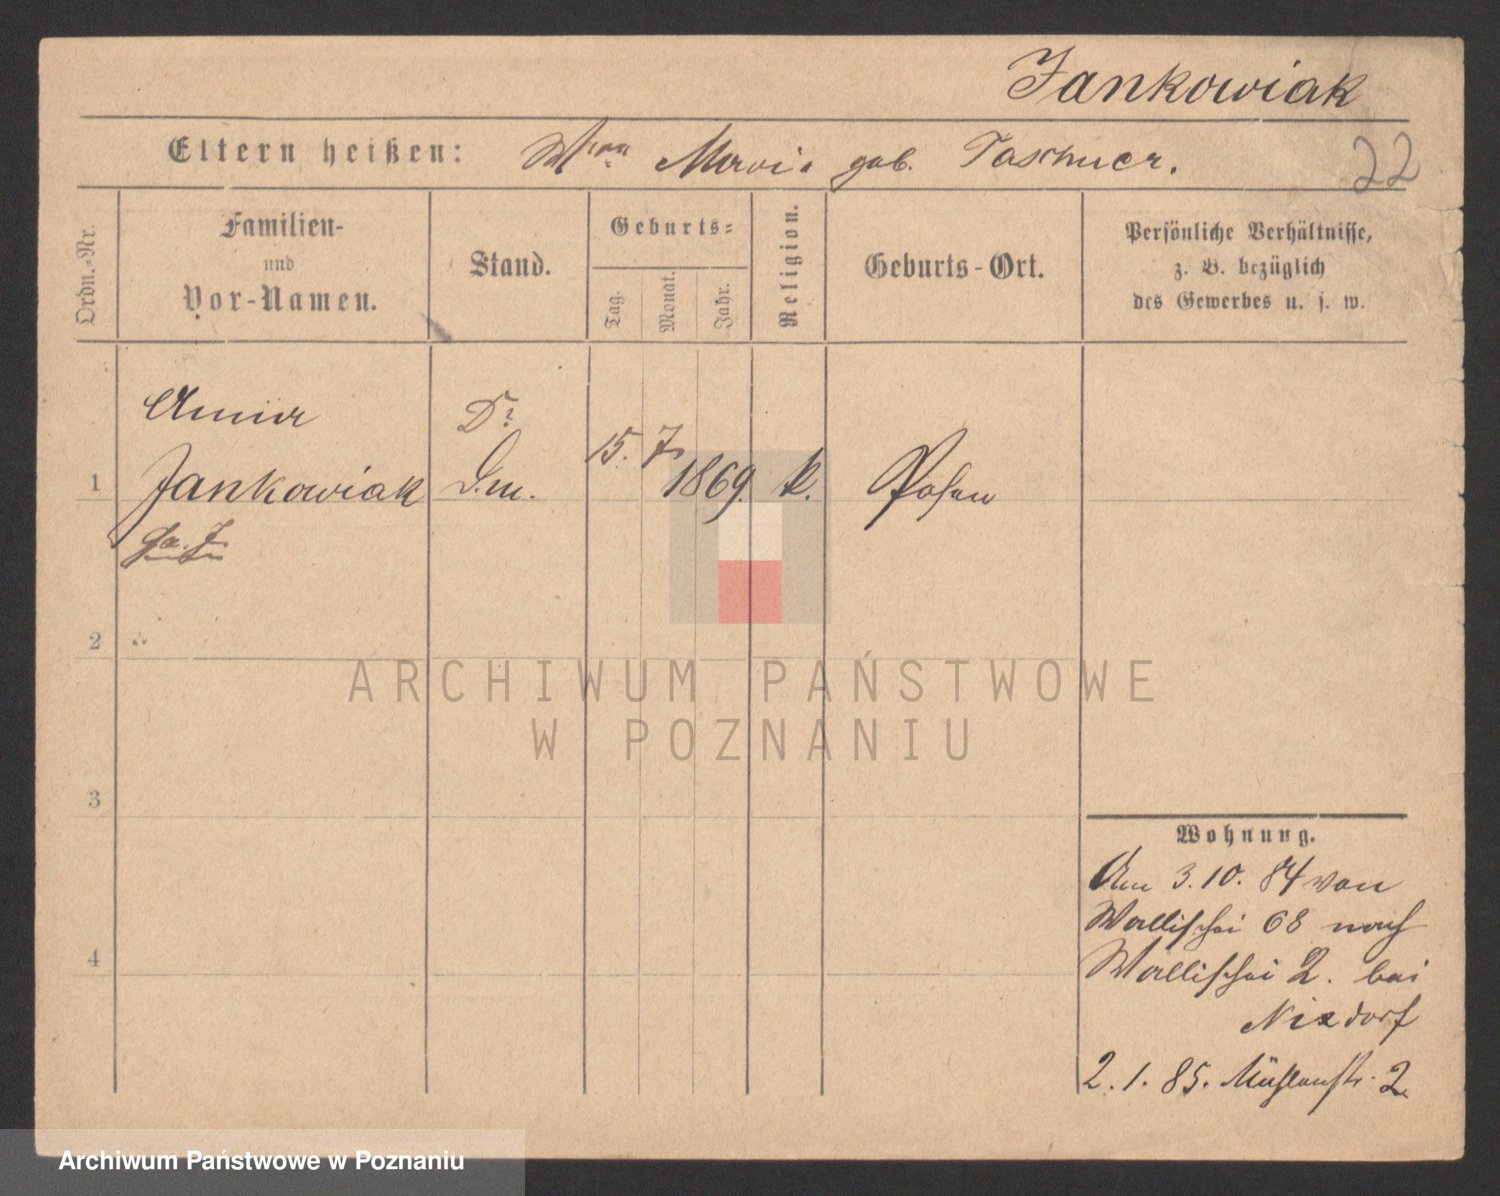 Jankowiak
Eltern heißen: Wwe Maria geb. Taschner.
22
Ordn.-Nr.
Familien-
und
Vor-Namen.
Stand.
Geburts-
Tag. Monat. Jahr.
Religion.
Geburts-Ort.
Persönliche Verhältnisse,
z. B. bezüglich
des Gewerbes u. s. w.
Anna
1 Jankowiak D.m. 15. 7. 1869. k. Posen
2
3
4
Wohnung.
Am 3.10.84 von
Wallischei 68 nach
Wallischei 2. bei
Nixdorf
2.1.85. Mühlenstr. 2
ARCHIWUM PAŃSTWOWE
W POZNANIU
Archiwum Państwowe w Poznaniu